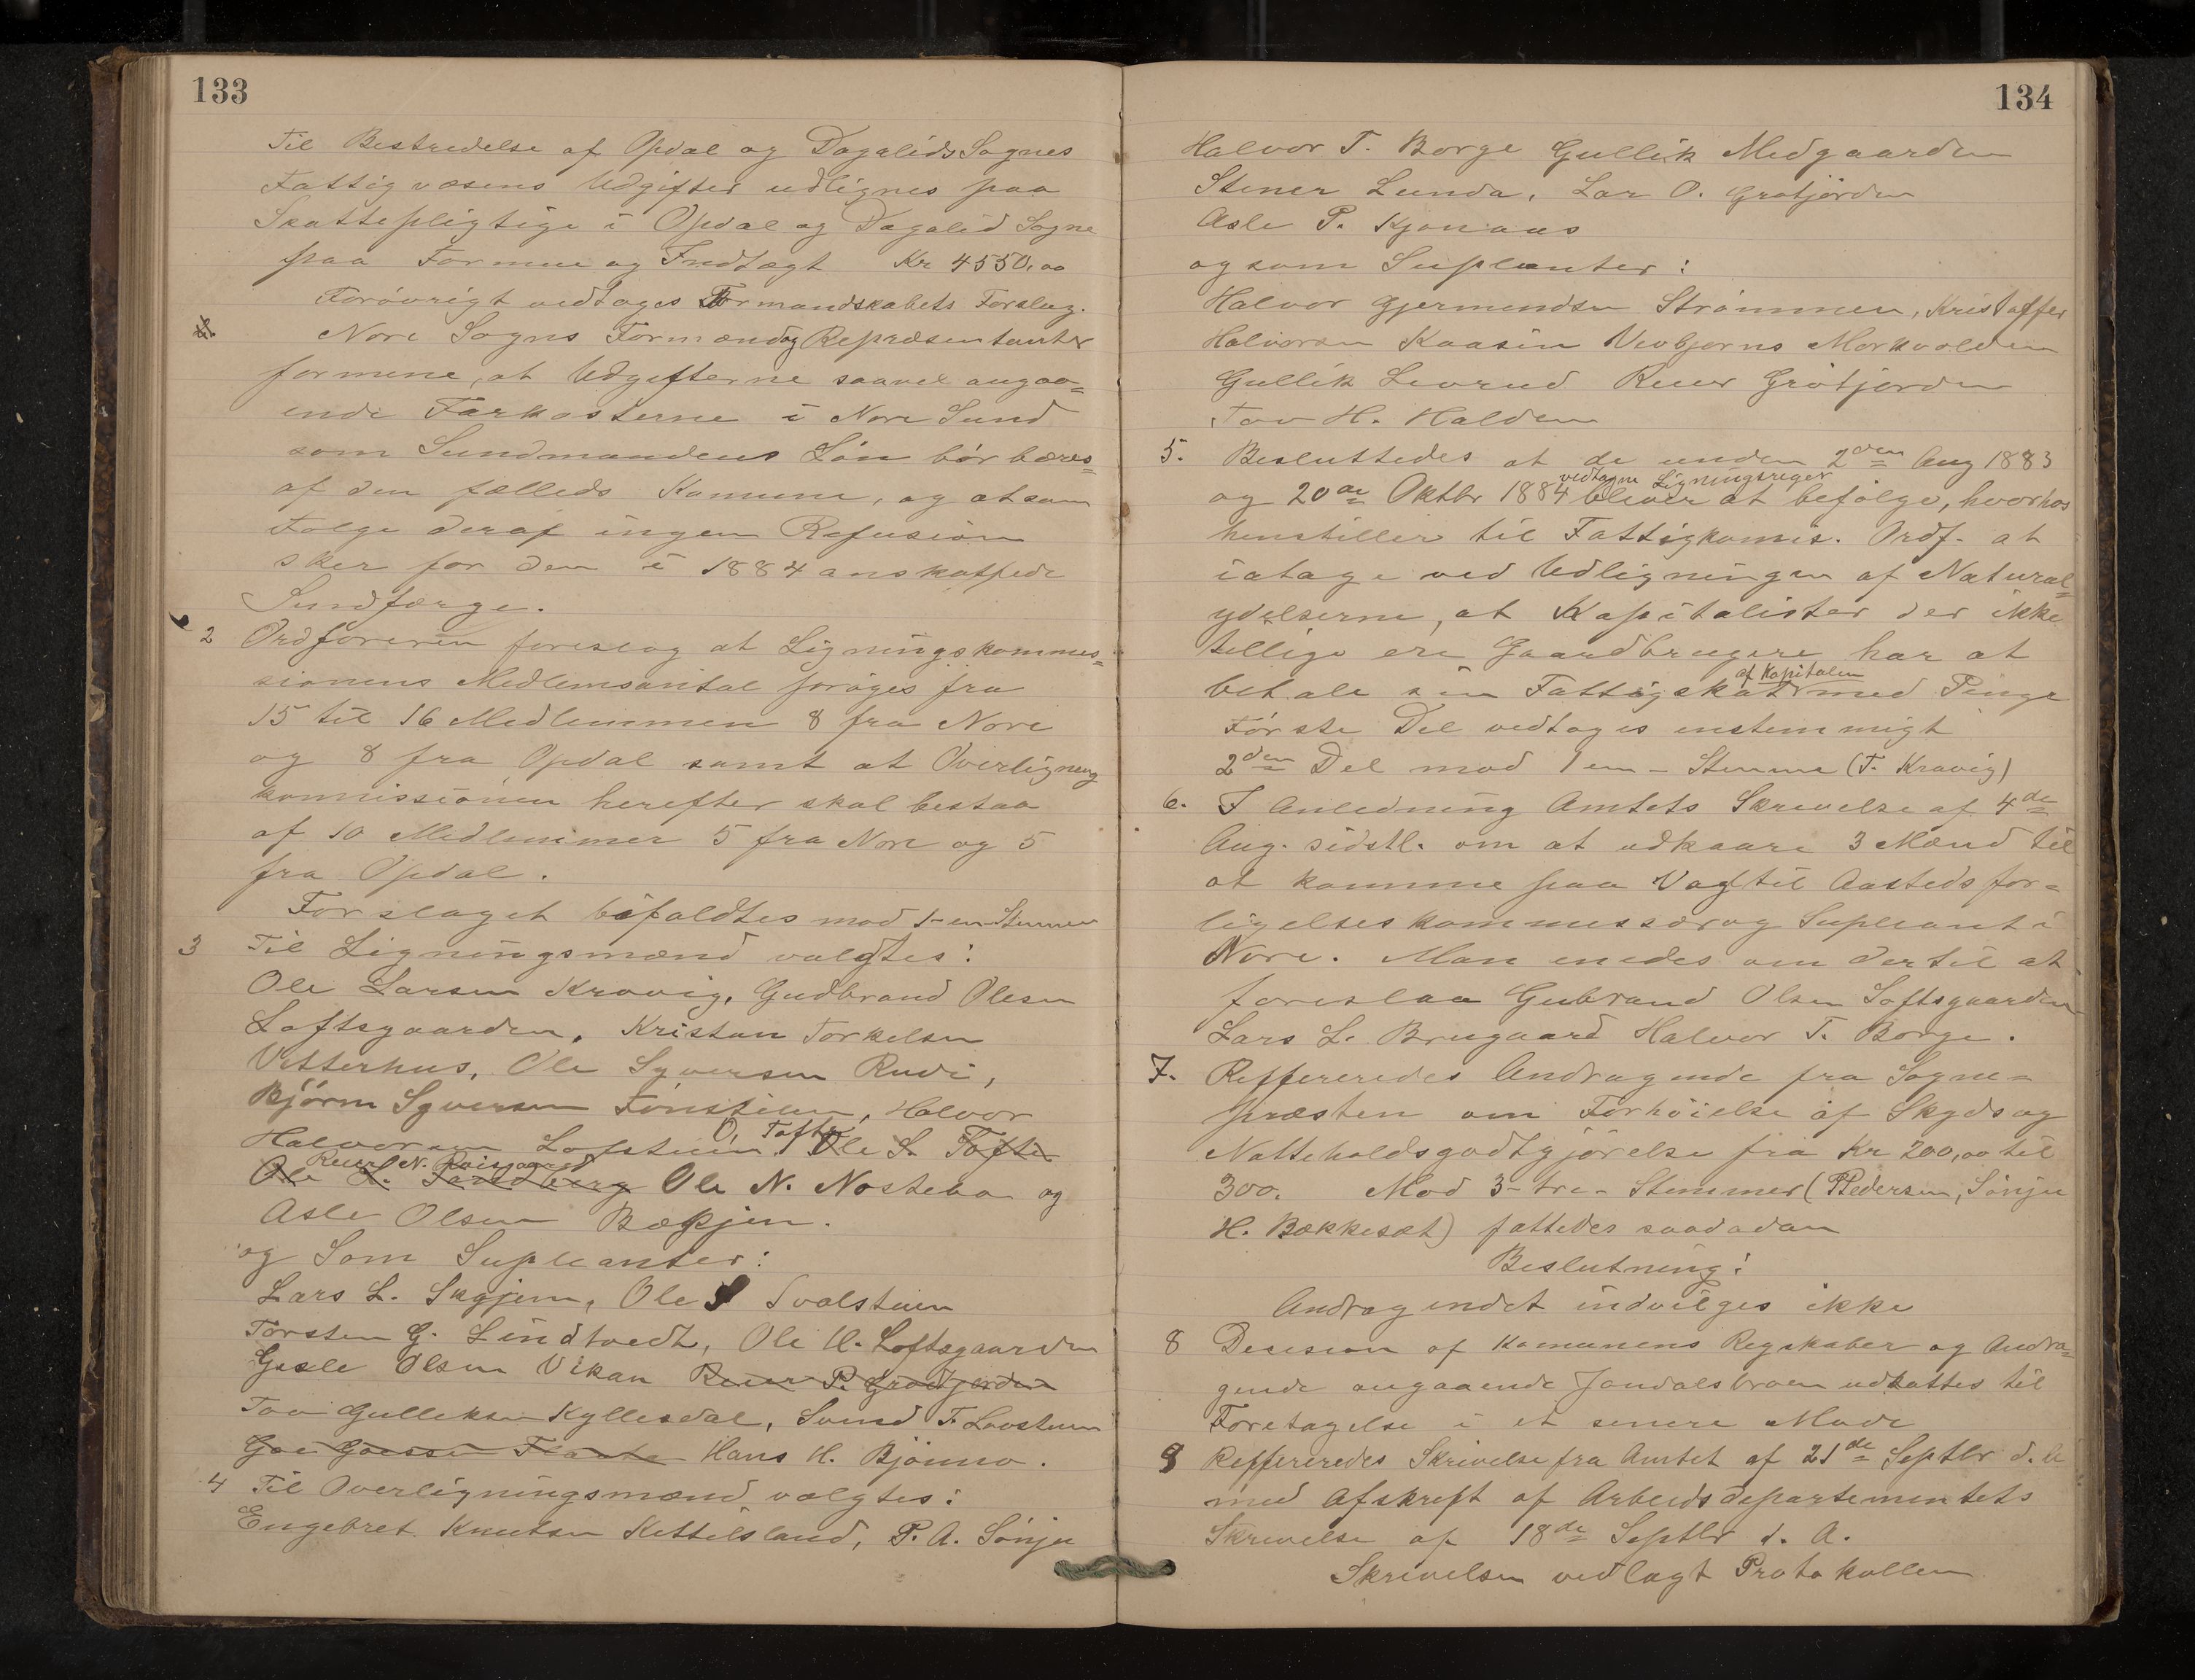 133
Til Bestredelse af Opdal og Dagalids Sognes
Fattigvæsens Udgifter udlignes paa
Skattepligtige i Opdal og Dagalid Sogne
paa Formue og Indtægt Kr 4550,00
Forøvrigt vedtages Formandskabets Forslag.
Nore Sogns Formænd og Repræsentanter
formene, at Udgifterne saavel angaa=
ende Farkosterne i Nore Sund
som Sundmandens Løn bør bæres=
af den fælleds Komune, og at som
Følge deraf ingen Refusion
sker for den i 1884 anskaffede
Sundfærge.
2 Ordføreren foreslog at Ligningskommis=
sionens Medlemsantal forøges fra
15 til 16 Medlemmen 8 fra Nore
og 8 fra Opdal samt at Overligning
kommissionen herefter skal bestaa
af 10 Medlemmer 5 fra Nore og 5
fra Opdal.
Forslaget bifaldtes mod 1-en-Stemme
3 Til Ligningsmænd valgtes:
Ole Larsen Kravig, Gudbrand Olesen
Loftsgaarden, Kristan Torkelsen
Vetterhus, Ole Syversen Rudi,
Bjørn Syversen Fønstelien, Halvor
O, Tofte
Halvorsen Lofstuen, Ole S. Tofte
Reier N. Raisgaard
Ole L. Sandberg Ole N. Nostebø og
Asle Olsen Bægjen.
og Som Supleanter:
Lars L. Skjgjem, Ole S Svalstuen
Torsten G. Lindtvedt, Ole H. Loftsgaarden
Gisle Olsen Vikan Reier P. Grotjorden
Tov Gulleksen Kyllesdal, Svend T. Lovstuen
Hans H. Bjønno.
4 Til Overligningsmænd valgtes:
Engebret Knutsen Kettilsland, P. A. Sønju
134
Halvor T. Borge Gullik Medgaarden
Stener Lunda, Lar O. Grotjorden
Asle P. Kjønaas
og som Supleanter:
Halvor Gjermundsen Strømmen, Kristoffer
Halvorsen Kaasin Vevbjørns Morkvolden
Gullik Levrud Reier Grøtjorden
Tov H. Halden
5. Besluttedes at de under 2den Aug 1883
vedtagne Ligningsreger
og 20de Oktbr 1884 bliver at befølge, hvorhos
henstiller til Fattigkomis. Ordf. at
iatage ved Udligningen af Natural=
ydelserne, at Kapitalister der ikke
tillige ere Gaardbrugere har at
af Kapitalen
betale sin Fattigskat med Penge
Første Del vedtages enstemmigt
2den Del mod 1 en - Stemme (T. Kravig)
6. I Anledning Amtets Skrivelse af 4de
Aug. sidstl. om at udkaare 3 Mænd til
at komme paa Valg til Aastedsfor=
ligelseskommissær og Supleant i
Nore. Man enedes om dertil at
foreslaa Gubrand Olsen Loftsgaarden
Lars L. Brugaard Halvor T. Borge.
7. Reffereredes Andragende fra Sogne=
præsten om Forhøielse af Skyds og
Natteholdsgodtgjørelse fra Kr 200,00 til
300. Mod 3-tre-Stemmer (P. Pedersen, Sønju
H. Bækkesæt) fattedes saadadan
Beslutning:
Andragendet indvilges ikke
8 Decision af Komunens Regskaber og Andra=
gende angaaende Jondalsbroen udsattes til
Foretagelse i et senere Møde
9 Reffereredes Skrivelse fra Amtet af 21de Septbr d. A
med Afskrift af Arbeidsdepartementets
Skrivelse af 18de Septbr d. A.
Skrivelsen vedlagt Protokollen